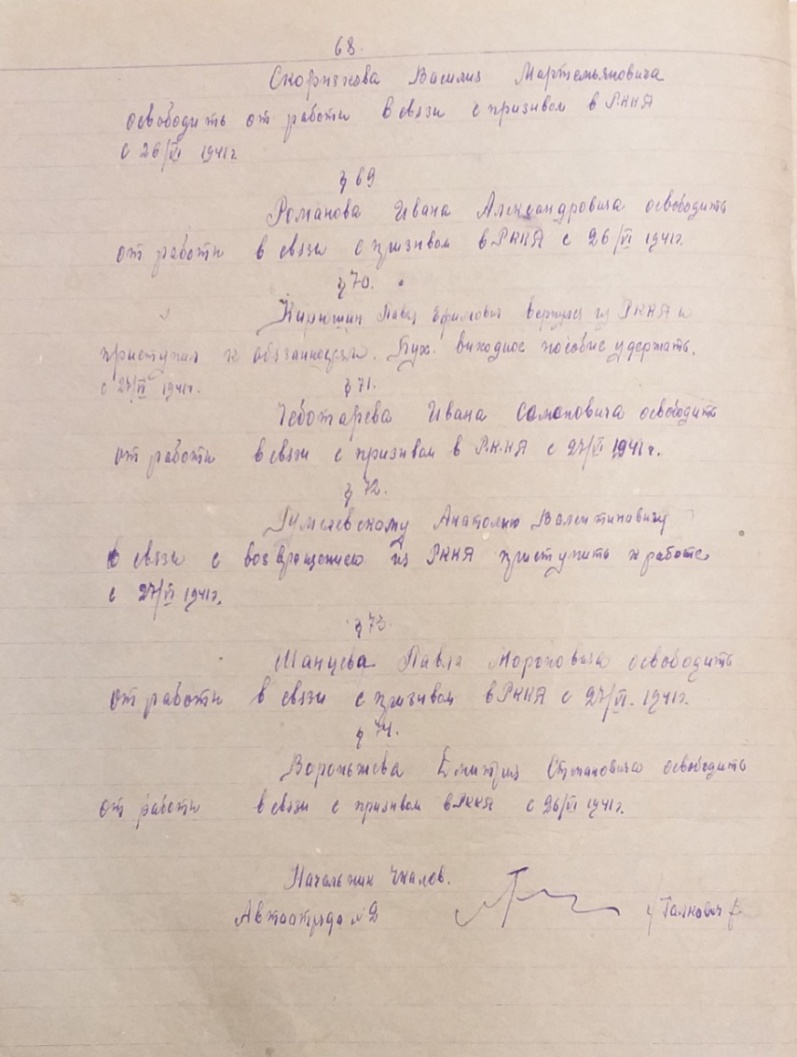 68.
Василия Мартемьяновича
освободить от работы в связи с призывом в РККА
с 26/VI 1941 г
§ 69
Романова Ивана Александровича освободить
от работы в связи с призывом в РККА с 26/VI 1941 г.
§ 70.
Кирюшин Павел Ефимович вернулся из РККА и
приступил к обязанностям. Бух. выходное пособие удержать.
с 27/VI 1941 г.
§ 71.
Чеботарева Ивана Семеновича освободить
от работы в связи с призывом в РККА с 27/VI 1941 г.
§ 72.
Анатолию Валентиновичу
в связи с возвращением из РККА приступить к работе
с 27/VI 1941 г.
§ 73.
Шанцева Павла освободить
от работы в связи с призывом в РККА с 27/VI. 1941 г.
§ 74.
Дмитрия Степановича освободить
от работы в связи с призывом в РККА с 26/VI 1941 г.
Начальник Чкалов.
Автоотряда № 2